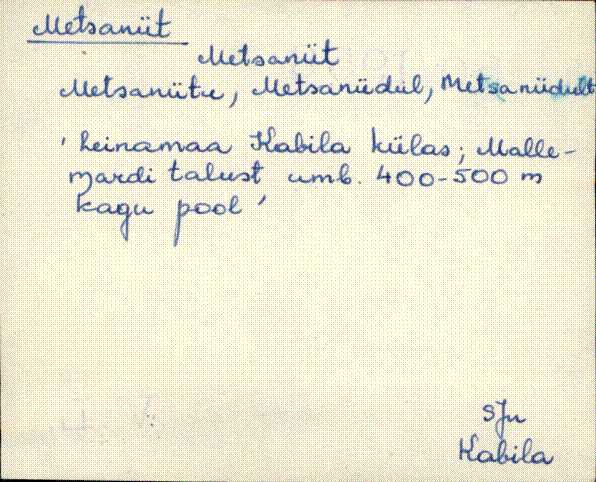 Metsanüt
Metsanüt
Metsanütu, Metsanüdül, Metsanüdült
'heinamaa Kabila külas; Malle-
mardi talust umb. 400-500 m
kagu pool'
SJn
Kabila